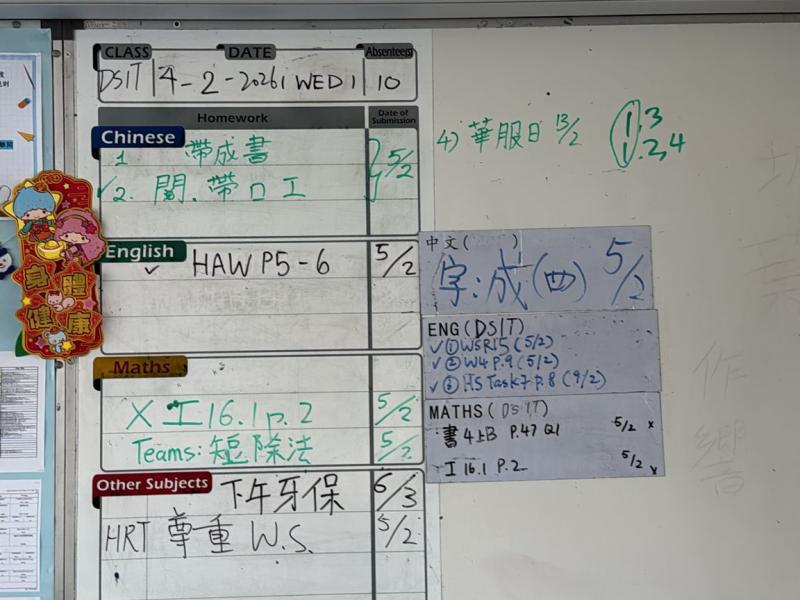 CLASS DATE Absentee(s)
DSIT 4-2-2026 WED 10
Homework Date of Submission
Chinese
1 帶成書 5/2
✓2. 閱.帶口工
English
✓ HAW P5-6 5/2
Maths
X 工16.1 p.2 5/2
Teams: 短除法 5/2
Other Subjects
下午牙保 6/3
HRT 尊重 W.S. 5/2
4) 華服日 13/2
1.3
1.2,4
中文( )
字:成(四) 5/2
ENG (DSIT)
✓①WSR15 (5/2)
✓②W4 P.9 (5/2)
✓③HS Task7 p.8 (9/2)
MATHS (DSIT)
書4上B P.47 Q1 5/2 x
工16.1 P.2 5/2
身體健康
作
響